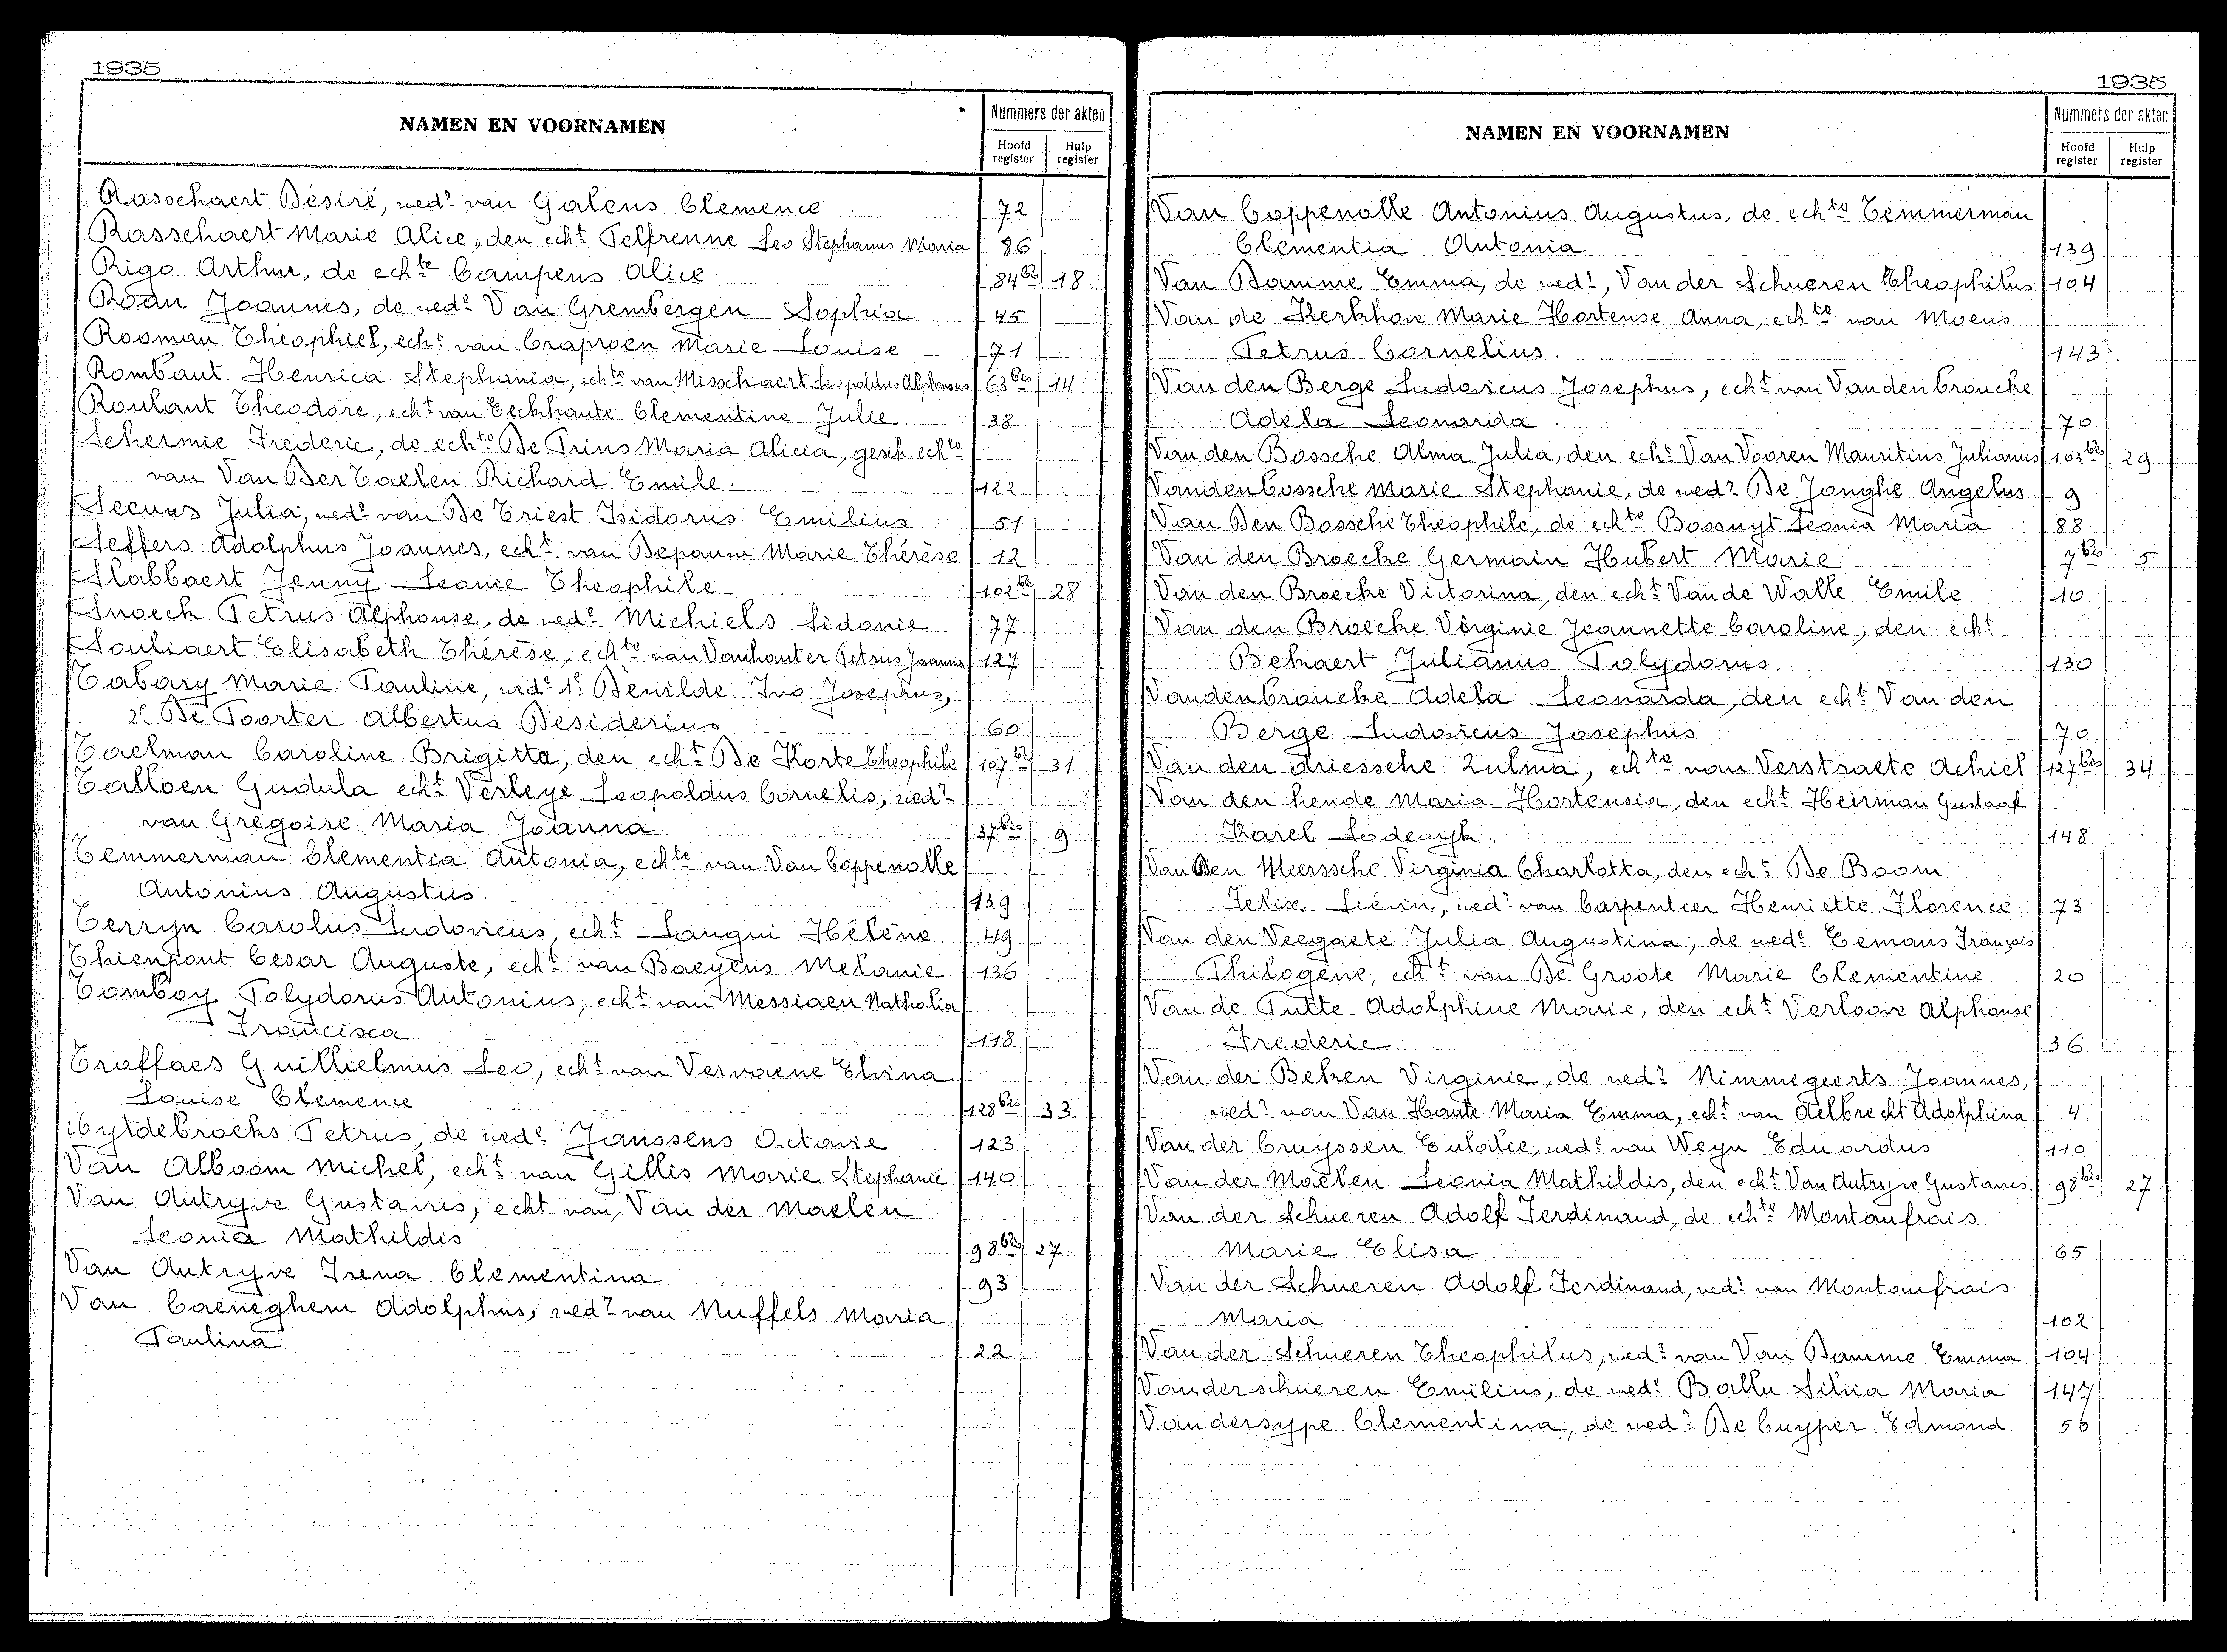 1935
NAMEN EN VOORNAMEN
Nummers der akten
Hoofd register
Hulp register
Rasschaert Désiré, wedr van Galens Clemence 72
Rasschaert Marie Alice, den echt Pelfrenne Leo Stephanus Maria 86
Rigo Arthur, de echte Campens Alice 84bis 18
Roan Joannes, de wede Van Grembergen Sophia 45
Rooman Théophiel, echt van Crapoen Marie Louise 71
Rombaut Henrica Stephania, echte van Misschaert Leopoldus Alphonsus 63bis 14
Roulant Theodore, echt van Eeckhaute Clementine Julie 38
Schermie Frederic, de echte De Prins Maria Alicia, gesch. echte
van Van Der Taelen Richard Emile. 122
Seeuws Julia, wede van De Triest Isidorus Emilius 51
Seffers Adolphus Joannes, echt van Depauw Marie Thérèse 12
Slabbaert Jenny Leonie Theophile 102bis 28
Snoeck Petrus Alphonse, de wede Michiels Sidonie 77
Souliaert Elisabeth Thérèse, echte van Vanhouter Petrus Joannes 127
Tabary Marie Pauline, wede 1e Dewilde Ivo Josephus,
2e De Poorter Albertus Desiderius 60
Taelman Caroline Brigitta, den echt De Korte Theophile 107bis 31
Talloen Gudula echt Verleye Leopoldus Cornelis, wedr
van Gregoire Maria Joanna 37bis 9
Temmerman Clementia Antonia, echte van Van Coppenolle
Antonius Augustus 139
Terryn Carolus Ludovicus, echt Langui Hélène 49
Thienpont Cesar Auguste, echt van Baeyens Melanie 136
Tomboy Polydorus Antonius, echt van Messiaen Nathalia
Francisca 118
Troffaes Guillielmus Leo, echt van Vervaene Elvina
Louise Clemence 128bis 33
Uytdebroeks Petrus, de wede Janssens Octavie 123
Van Alboom Michel, echt van Gillis Marie Stephanie 140
Van Autryve Gustavus, echt. van, Van der Maelen
Leonia Mathildis 98bis 27
Van Autryve Irena Clementina 93
Van Caeneghem Adolphus, wedr van Nuffels Maria
Paulina 22
1935
NAMEN EN VOORNAMEN
Nummers der akten
Hoofd register
Hulp register
Van Coppenolle Antonius Augustus, de echte Temmerman
Clementia Antonia 139
Van Damme Emma, de wedr, Van der Schueren Theophilus 104
Van de Kerkhove Marie Hortense Anna, echte van Moens
Petrus Cornelius 143
Van den Berge Ludovicus Josephus, echt van Vandenbroucke
Adela Leonarda 70
Van den Bossche Alma Julia, den echt Van Vooren Mauritius Julianus 103bis 29
Vandenbossche Marie Stephanie, de wedr De Jonghe Angelus 9
Van Den Bossche Théophile, de echte Bossuyt Leonia Maria 88
Van den Broecke Germain Hubert Marie 7bis 5
Van den Broecke Victorina, den echt Van de Walle Emile 10
Van den Broecke Virginie Jeannette Caroline, den echt
Bekaert Julianus Polydorus 130
Vandenbroucke Adela Leonarda, den echt Van den
Berge Ludovicus Josephus 70
Van den driessche Zulma, echte van Verstraete Achiel 127bis 34
Van den hende Maria Hortensia, den echt Heirman Gustaaf
Karel Lodewyk. 148
Van Den Meerssche Virginia Charlotta, den echt De Boom
Felix Liévin, wedr van Carpentier Henriette Florence 73
Van den Veegaete Julia Augustina, de wede Eemans François
Philogène, echt van De Groote Marie Clementine 20
Van de Putte Adolphine Marie, den echt Verloove Alphonse
Frederic 36
Van der Beken Virginie, de wedr Nimmegeerts Joannes,
wedr van Van Haute Maria Emma, echt van Aelbrecht Adolphina 4
Van der Cruyssen Eulalie, wede van Weyn Eduardus 110
Van der Maelen Leonia Mathildis, den echt Van Autryve Gustavus 98bis 27
Van der Schueren Adolf Ferdinand, de echte Montaufrais
Marie Elisa 65
Van der Schueren Adolf Ferdinand, wedr van Montaufrais
Maria 102
Van der Schueren Theophilus, wedr van Van Damme Emma 104
Vanderschueren Emilius, de wede Ballu Silvia Maria 147
Vandersype Clementina, de wedr De Cuyper Edmond 50